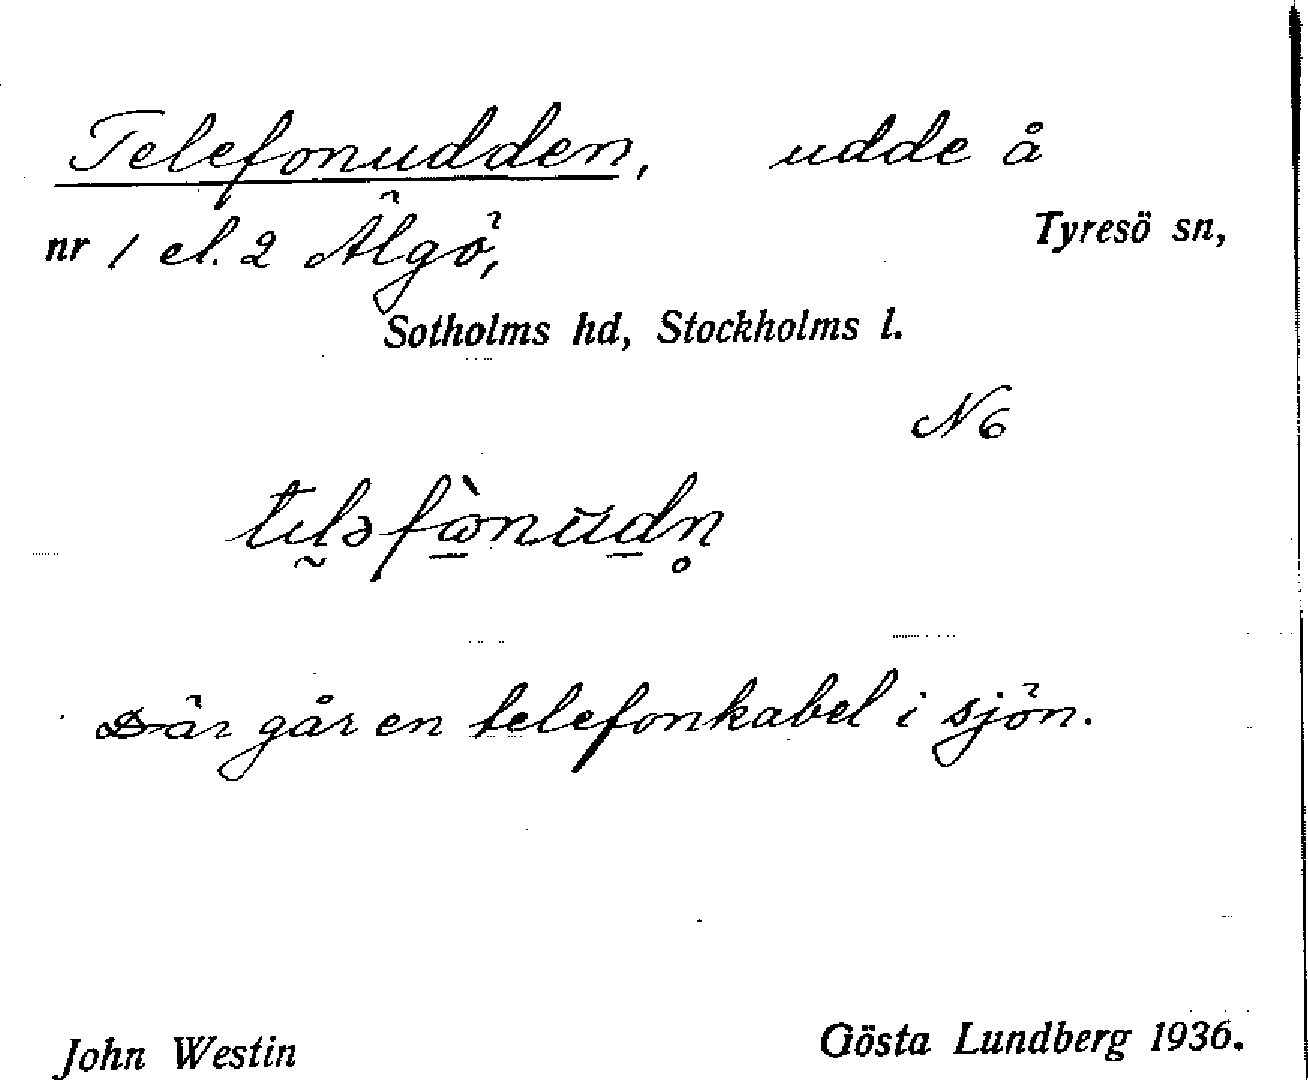 Telefonudden, udde å
nr 1 el. 2 Älgö, Tyresö sn,
Sotholms hd, Stockholms l.
N6
Där går en telefonkabel i sjön.
John Westin Gösta Lundberg 1936.